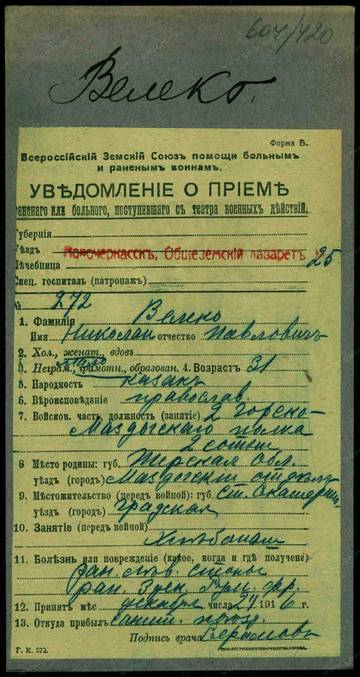 604/420
Велеко.
Форма Б.
Всероссійскій Земскій Союзъ помощи больнымъ
и раненымъ воинамъ.
УВѢДОМЛЕНІЕ О ПРІЕМѢ
раненаго или больного, поступившаго съ театра военныхъ дѣйствій.
Губернія
Уѣздъ
Новочеркасскъ, Общеземскій лазаретъ 25
Лѣчебница
Спец. госпиталь (патронажъ)
№ 272
1. Фамилія Велеко
Имя Николай отчество Павловичъ
2. Хол., женат., вдовъ
мало
3. Неграм., грамотн., образован. 4. Возрастъ 31
5. Народность казакъ
6. Вѣроисповѣданіе православ.
7. Войсков. часть, должность (занятіе) 2 Горско-
Моздокскаго полка
2 сотни
8 Мѣсто родины: губ. Терская Обл.
уѣздъ (городъ) Моздокскій отдѣлъ
9. Мѣстожительство (передъ войной): губ. ст. Екатерин
уѣздъ (городъ) градская
10. Занятіе (передъ войной)
Хлѣбопаш
11. Болѣзнь или поврежденіе (какое, когда и гдѣ получено)
ран. лѣв. стопы
ран.
12. Принятъ мѣс декабря числа 1916 г.
13. Откуда прибылъ Санит. поѣзд.
Подпись врача
Г. К. 572.